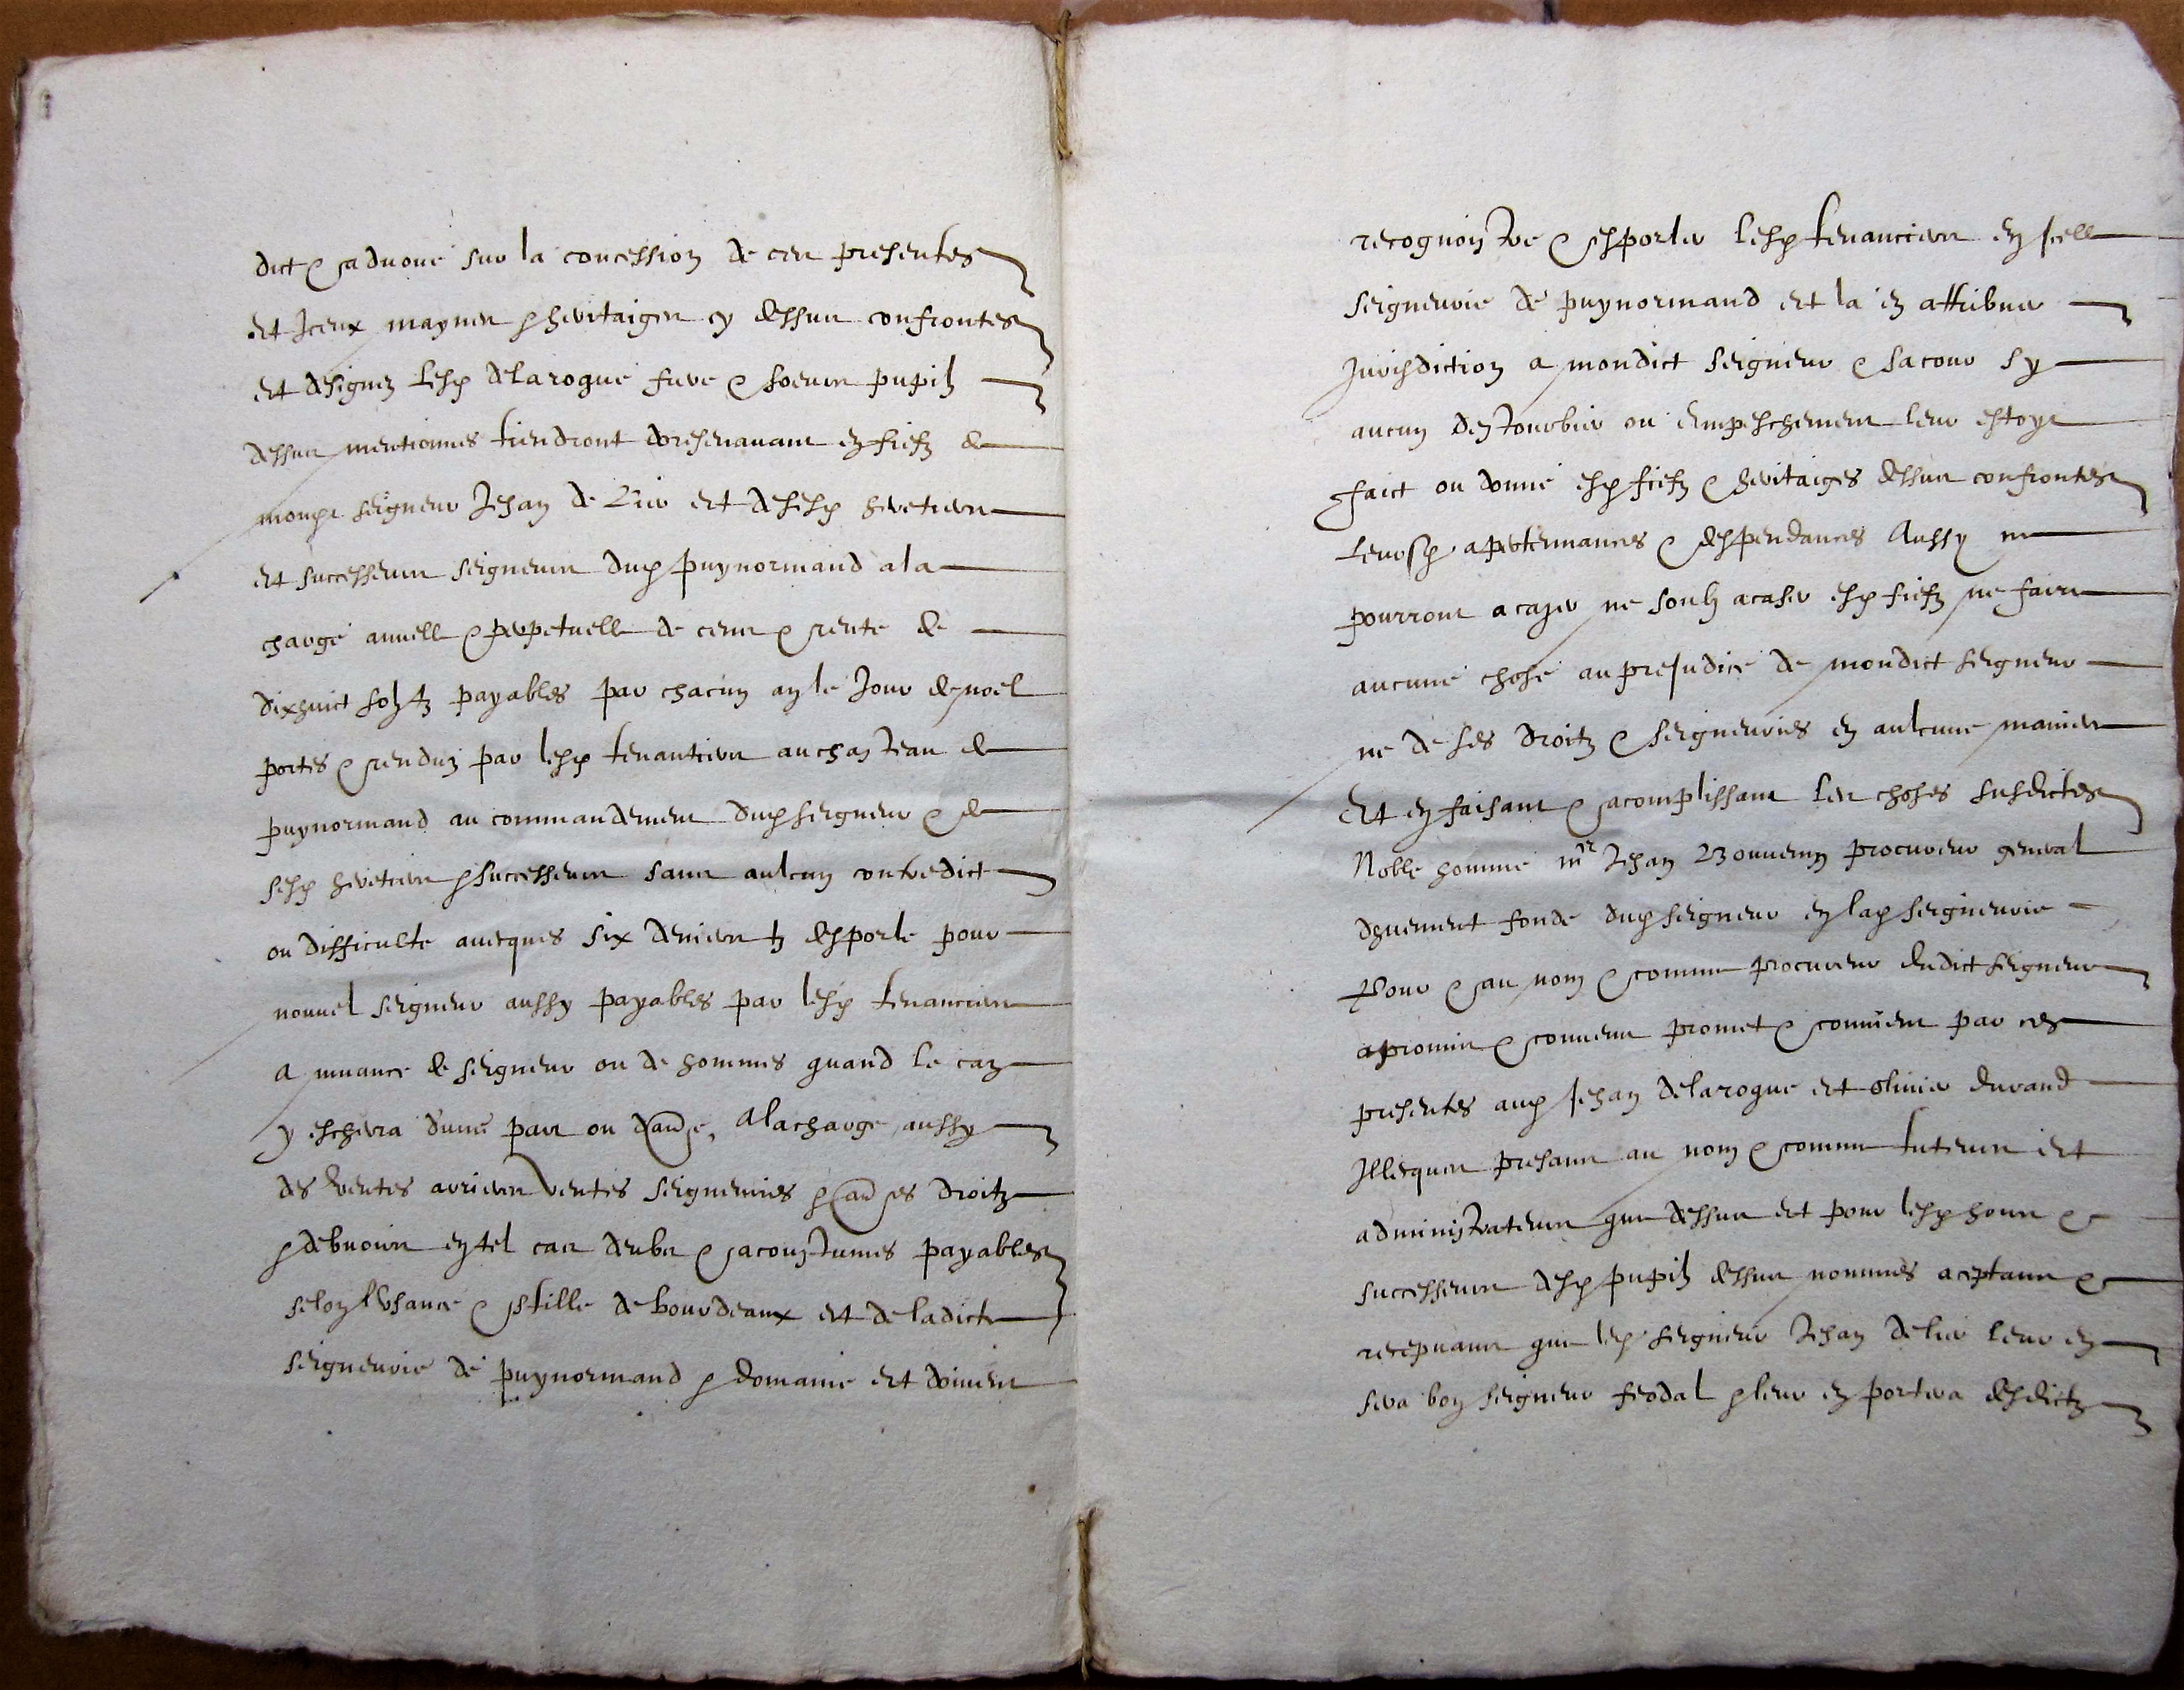 dict & advoué sur la concession de ces presentes
et Iceux maynes & heritaiges cy dessus confrontes
et designez lesd delarogue frere & soeurs pupilz
dessus mentionnes tiendront doresenavant en fiefz de
mond seigneur Jehan de Lur et de sesd heretiers
et successeurs seigneurs dud puynormand a la
charge annuelle & perpetuelle de cens & rente de
dixhuict solz tz payables par chacun an le Jour de noel
portes & renduz par lesd tenantiers au chasteau de
puynormand au commandement dud seigneur & de
sesd heretiers & successeurs sans aulcun contredict
ou difficulte avecques six deniers tz desporle pour
nouvel seigneur aussy payables par lesd tenanciers
a muance de seigneur ou de hommes quand le cas
y eschera dune part ou daue, A la charge aussy
des ventes arrieres ventes seigneuries & aues droitz
& debvoirs en tel cas deubz & acoustumes payables
selon lusance & stille de bourdeaux et de ladicte
seigneurie de puynormand & domaine et doivent
recognoistre & esporler lesd tenanciers en Icelle
seigneurie de puynormand et la en attribuer
Jurisdiction a mondict seigneur & sa cour sy
aucun destourbier ou empeschement leur estoyt
faict ou donne esd fiefz & heritaiges dessus confrontes
leursd apertenances & despendances Aussy ne
pourront acazer ne soubz acaser esd fiefz ne faire
aucune chose au preJudice de mondict seigneur
ne de ses droitz & seigneuries en aulcune maniere
Et en faisant & acomplissant les choses susdictes
Noble homme mr Jehan procureur general
deuement fonde dud seigneur en lad seigneurie
Pour & au nom & comme procureur dudict seigneur
a promis & convenu promet & convient par ces
presentes aud Jehan delarogue et olivier durand
Illecques presans au nom & comme tuteurs et
administrateurs que dessus et pour lesd hoirs &
successeurs desd pupilz dessus nommes aceptans &
recepvans que led seigneur Jehan de lur leur en
sera bon seigneur feodal & leur en portera desdictz